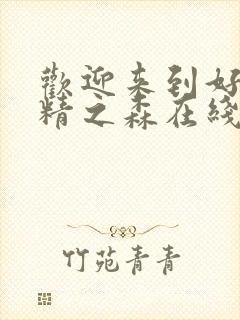 歡迎来到好
精之森在綫
竹苑青青